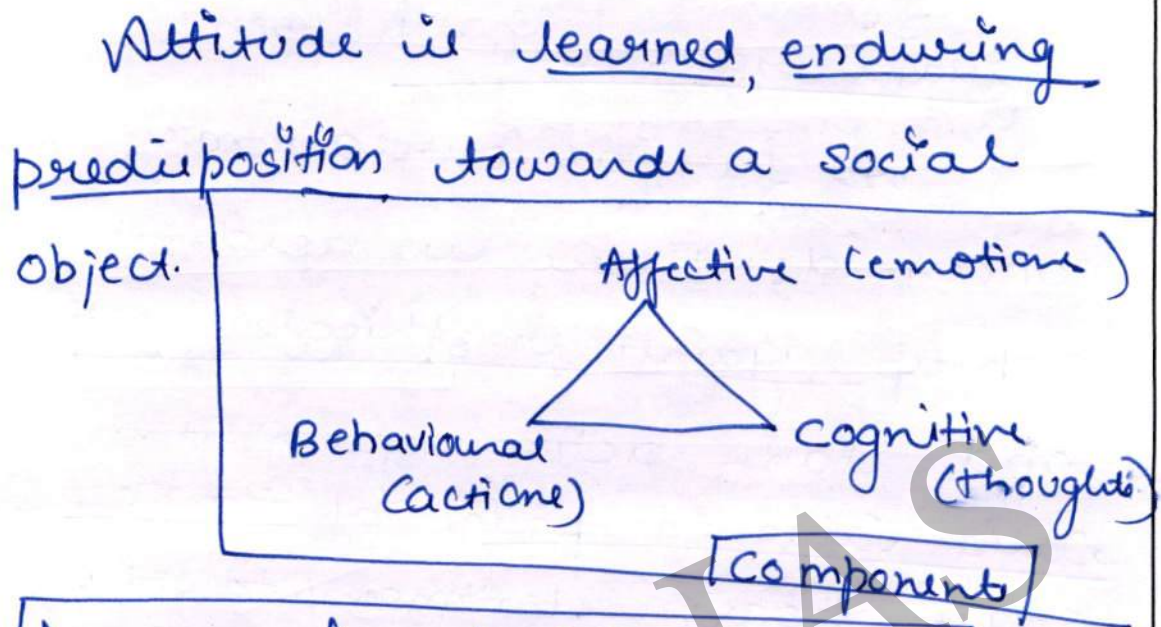 Attitude is learned, enduring
predisposition towards a social
object.
Affective (emotions)
Behavioural
(actions)
Cognitive
(thoughts)
Components
IAS